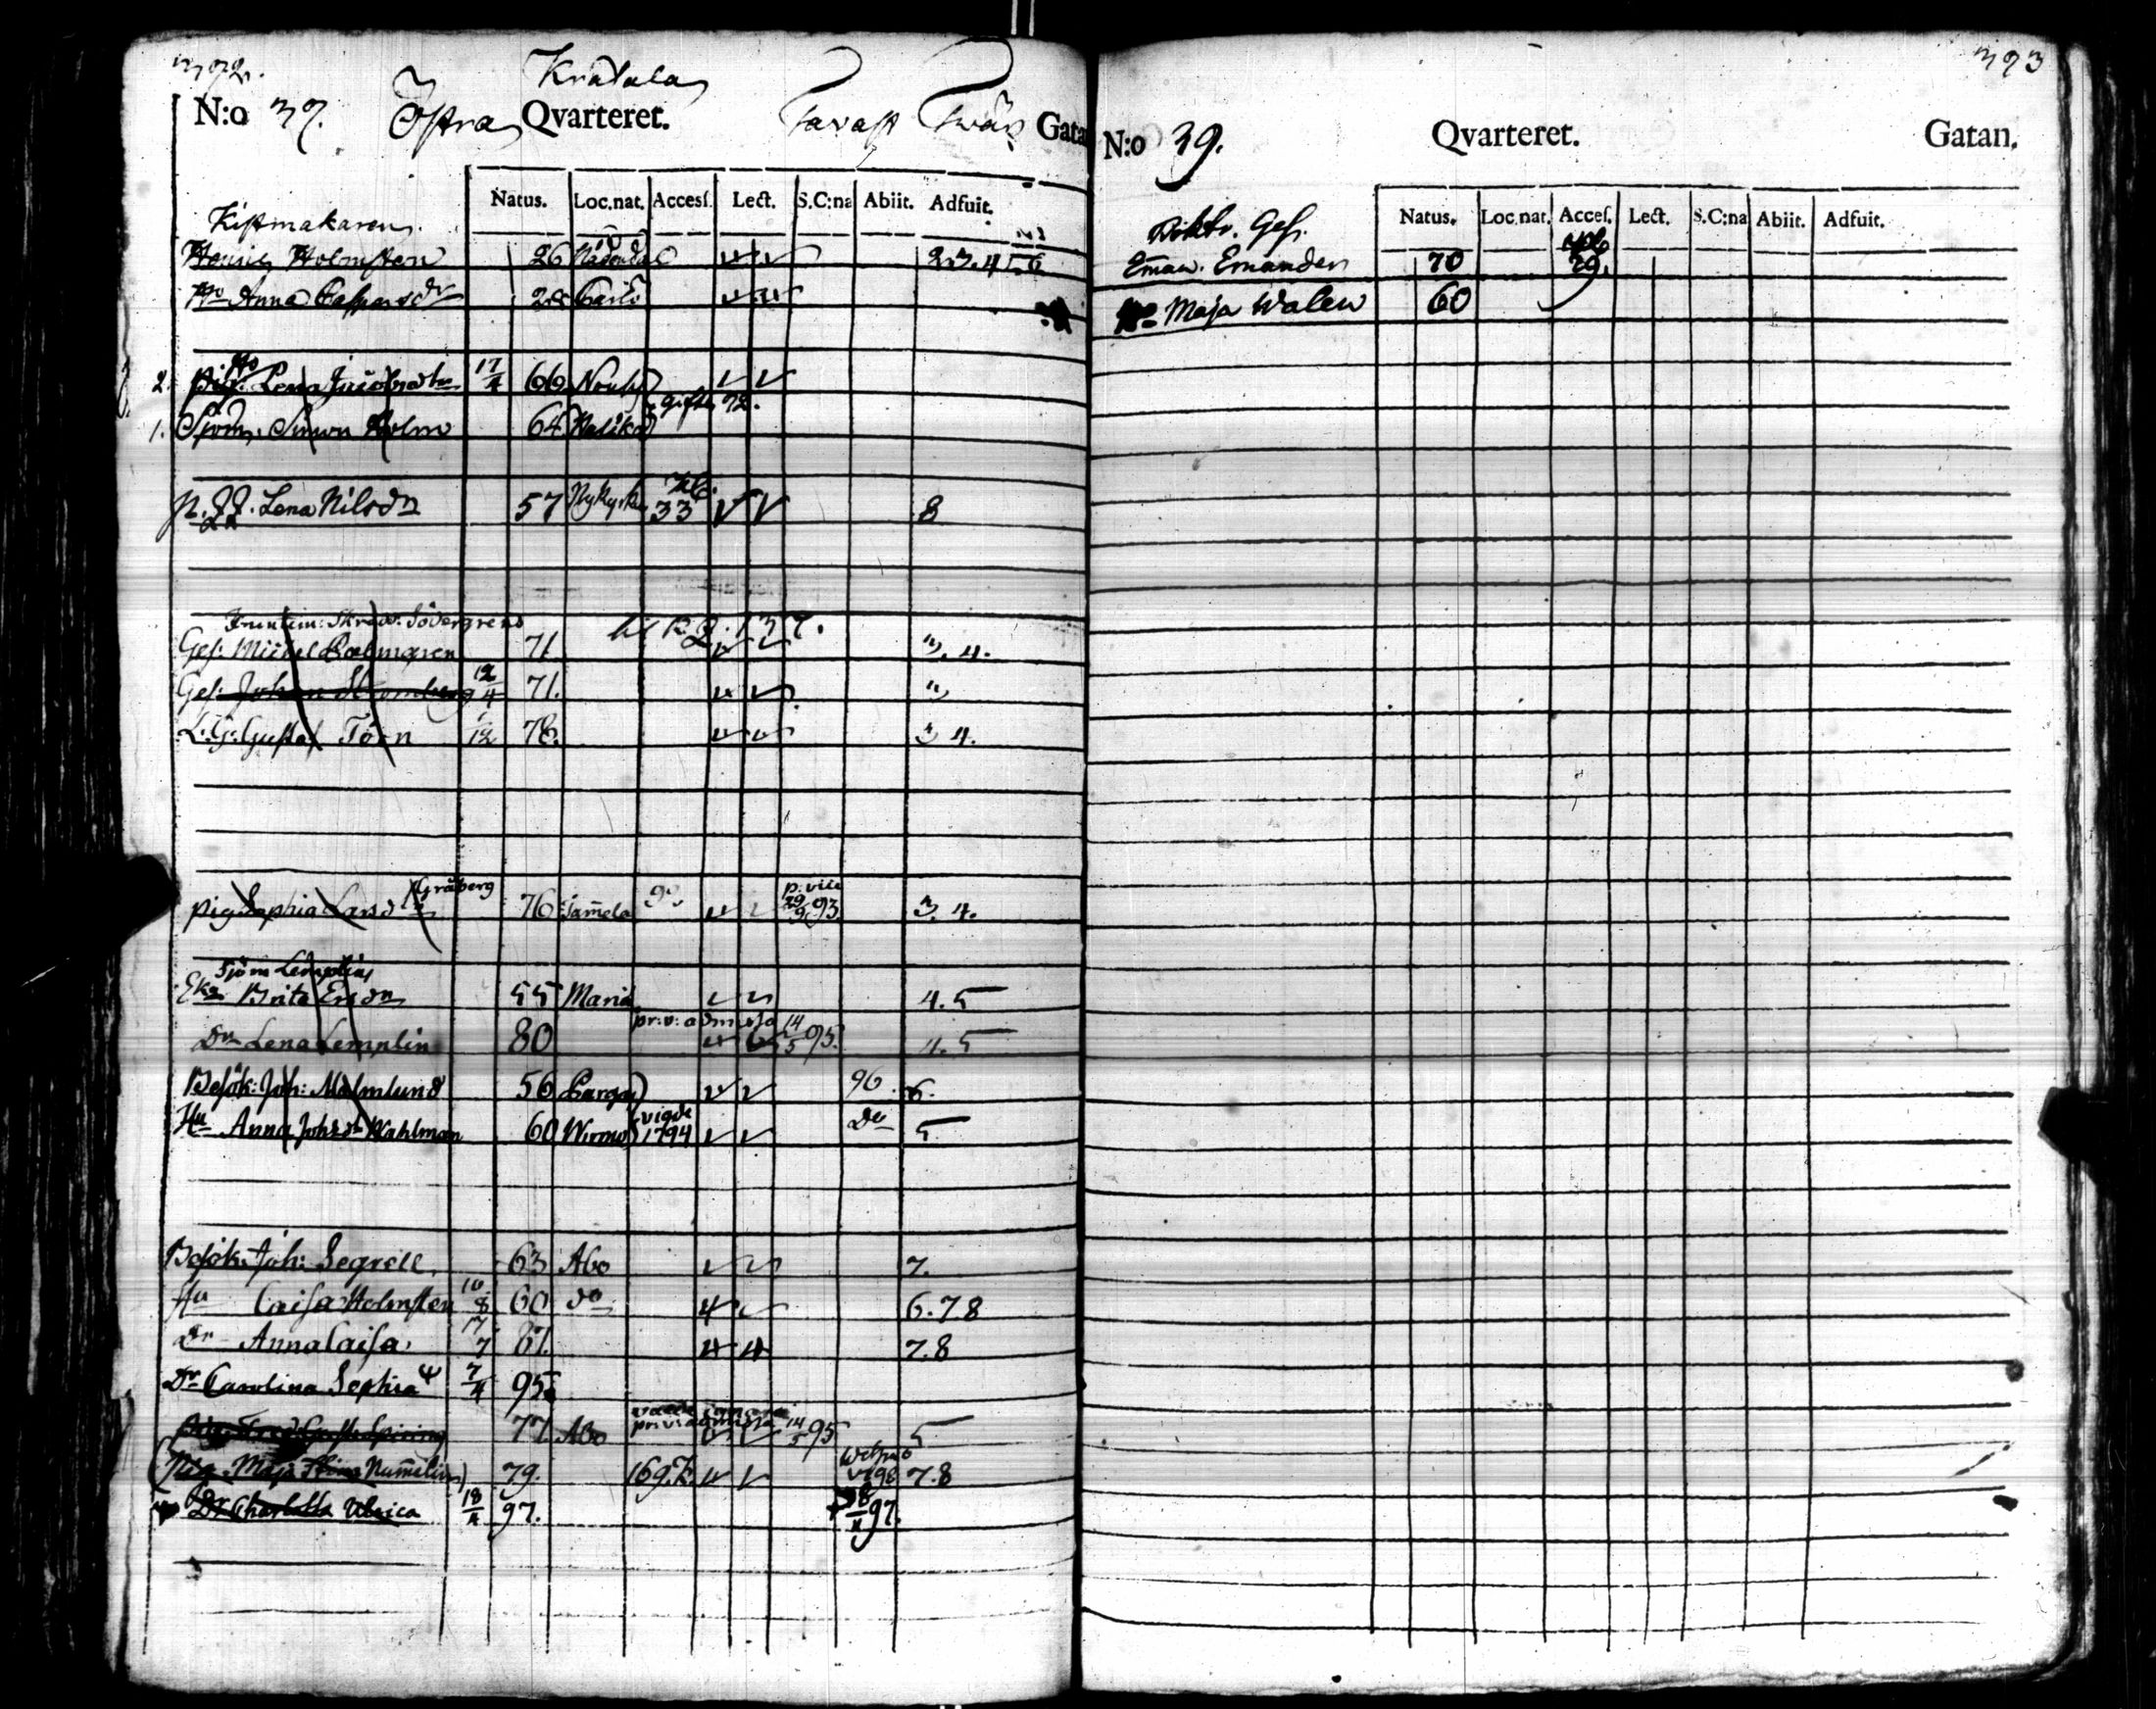 392.
Krädala
N:o 39. Östra Qvarteret. Tavast Twär Gata
Natus. Loc.nat. Accesſ. Lect. S.C:na Abiit. Adfuit.
Kistmakaren
Henric Holmsten 26 Nådendal 2.3.4.5.6
Hu Anna Caspersdr 28
2. Pig. Hu Lena Jacobsdtr 17/4 66 Nousis
gifte 92.
1. Sjöm. Simon Holm 64 Haliko
Lena Nilsdr 57 Nykyrka 33 8
Fruntim: Skredd. Södergrens
Ges: Michel Palmgren 71. 3. 4.
Ges: Johan Strömberg 12/4 71. 3
L:G: Gustaf Törn 1/12 78. 3 4.
Gråberg
pig Sophia Larsdr 76 Samela 90 p. vice 29/9 93 3. 4.
Sjöm Lemplins
Eka Brita Ersdr 55 Maria 4. 5
Dr Lena Lemplin 80 pr: v: admissa 14/5 95. 4. 5
Besök: Joh: Malmlund 56 Pargas 96. 6.
Hu Anna Johsdr Wahlman 60 Wirmo vigde 1794 Do 5
Besök: Joh: Segrell. 63 Abo 7.
Hu Caisa Holmsten 10/8 60 do 6. 7 8
Dr Anna Caisa. 17/7 87. 7. 8
Dr Carolina Sophia 7/4 95.
77. Abo pr: v: admissa 14/5 95 5
(Pig. Maja Stina Numelin) 79. 169. 98 7. 8
Dr Charlotta Ulrica 18/4 97. 97.
393
N:o 39. Qvarteret. Gatan.
Natus. Loc.nat. Acceſ. Lect. S.C:na Abiit. Adfuit.
Ges.
Eman. Emander 70 29.
Hu Maja Walen 60